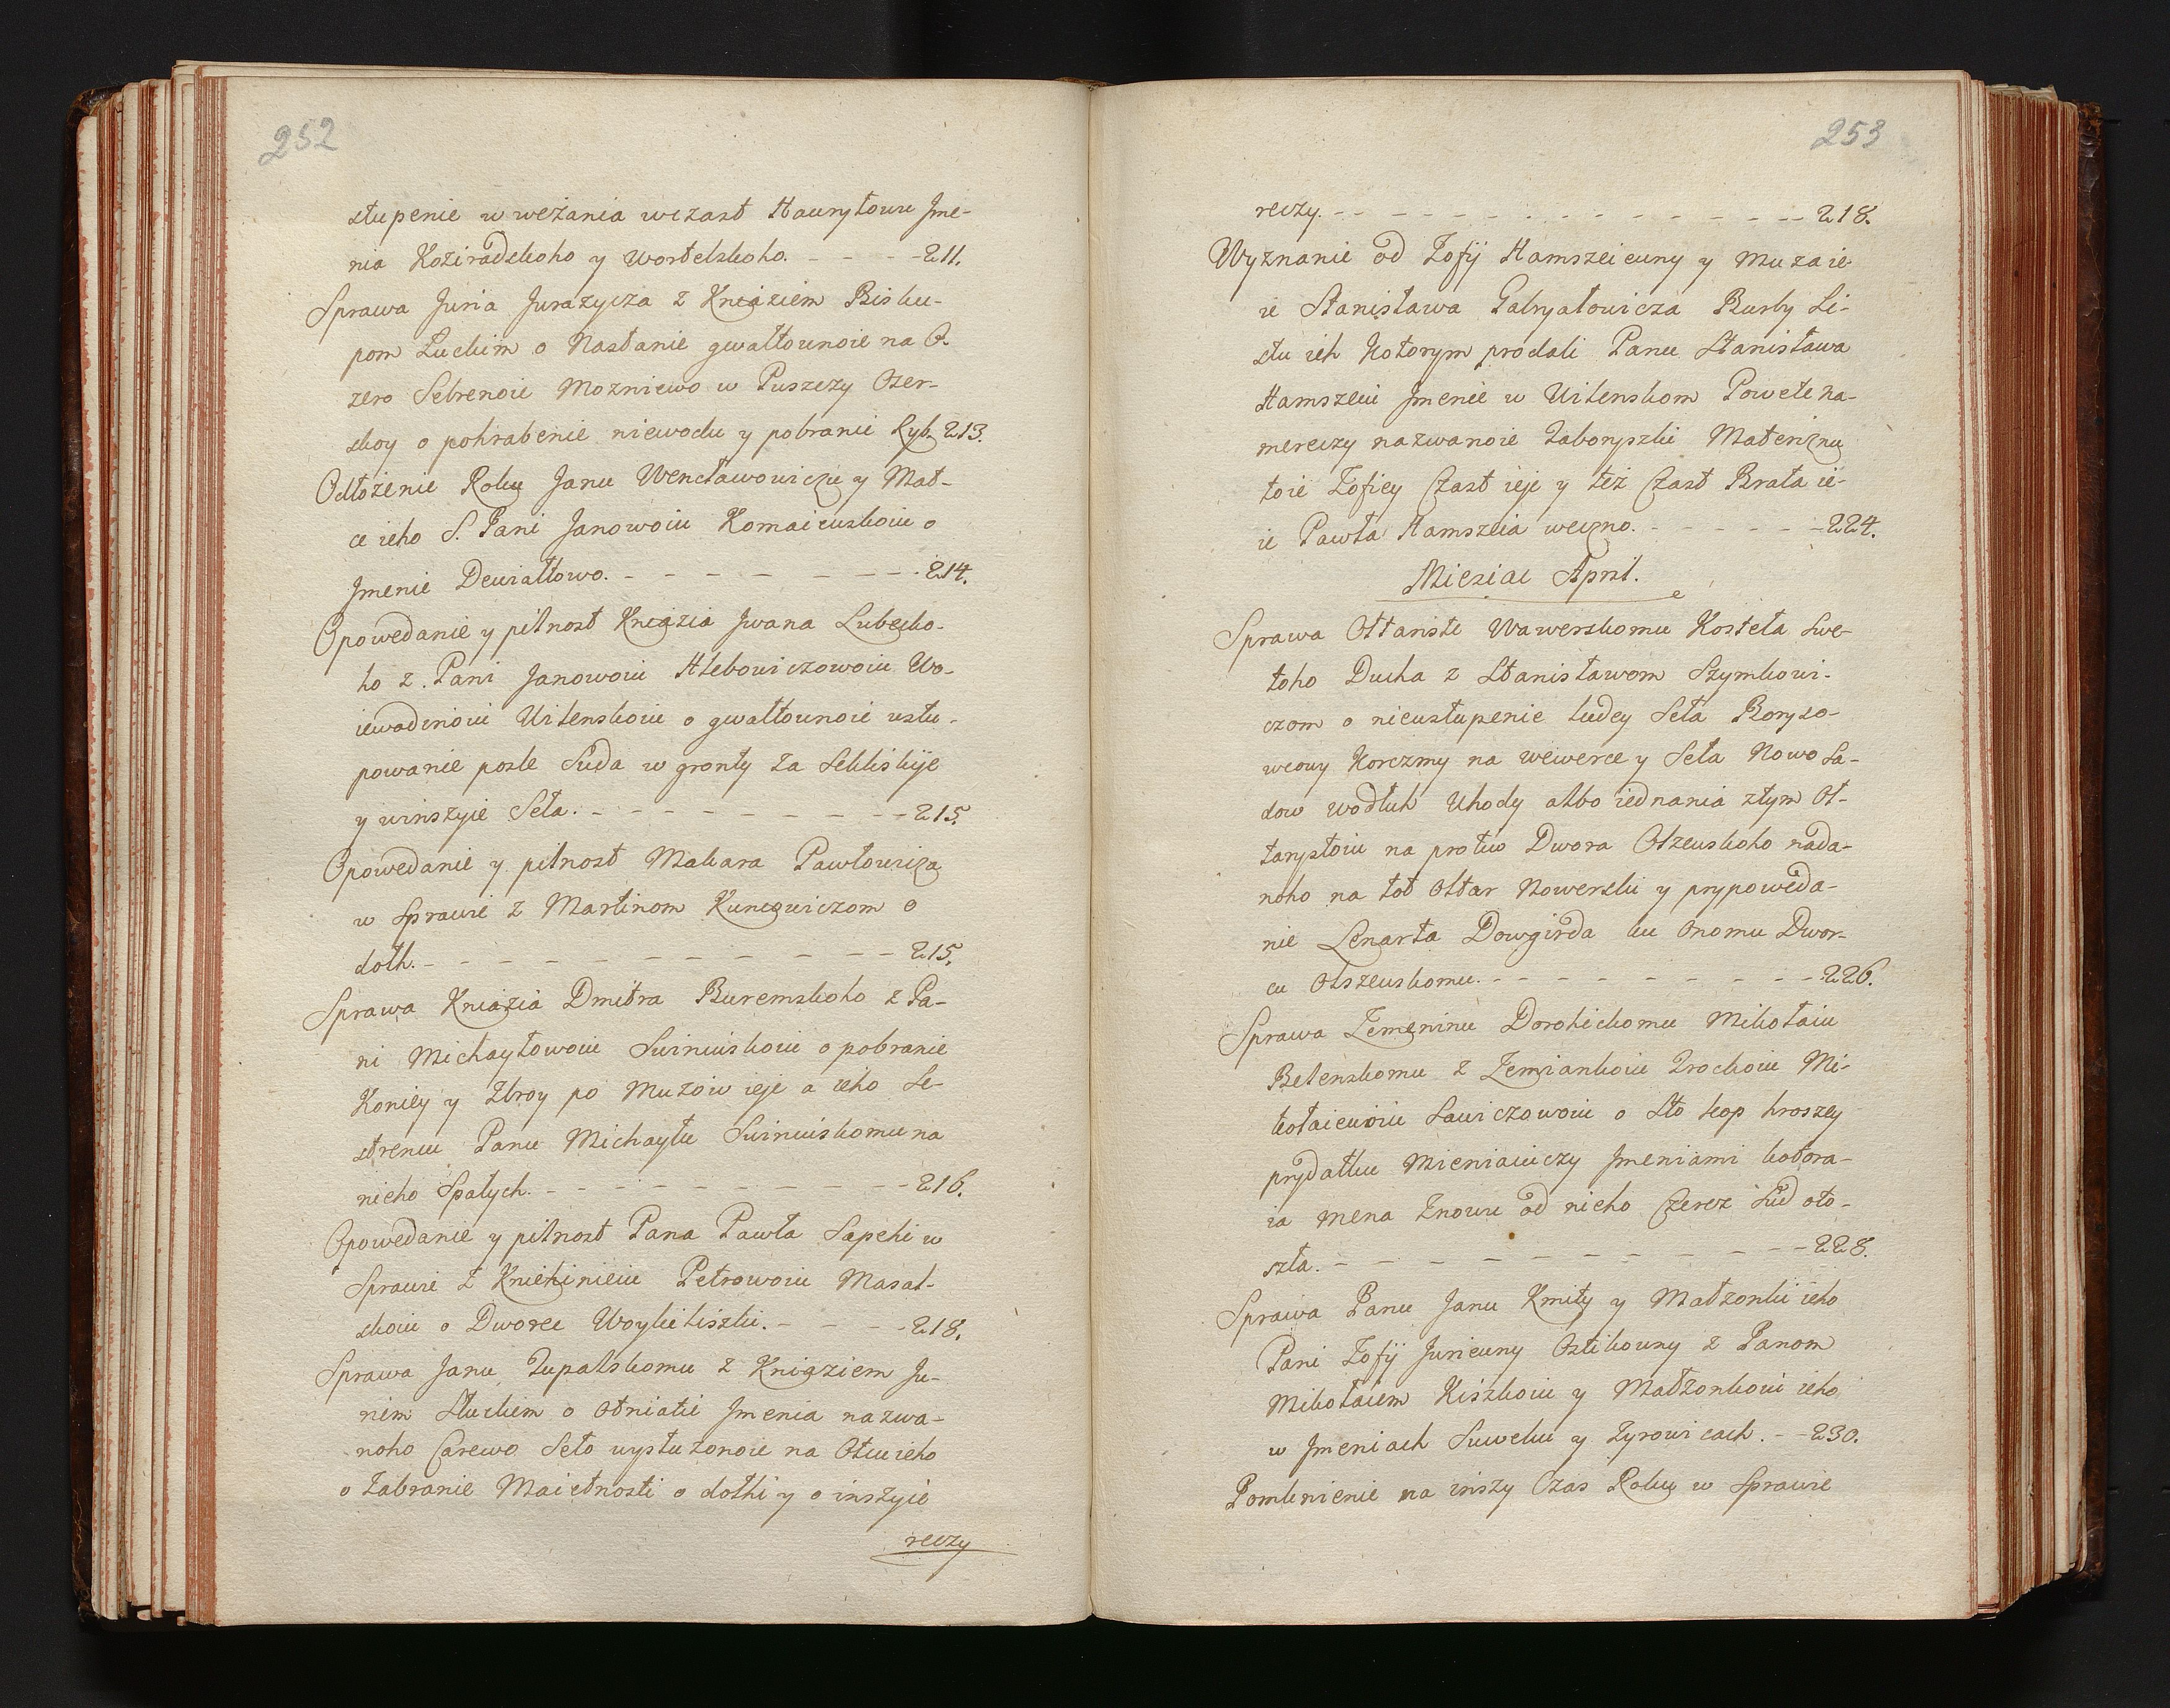 252
stupenie w weżania wczast Hawryłowu Jme-
nia Koziradskoho y Wortelskoho. - - - - 211.
Sprawa Juria Jurazycza z Kniaziem Bisku-
pom Łuckim o Nastanie gwałtownoie na O-
zero Sebrenoie Mozniewo w Puszczy Ozer-
skoy o pohrabenie niewodu y pobranie Ryb. 213.
Odłożenie Roku Janu Wencławowiczu y Mat-
ce ieho S. Pani Janowoiu Komaiewskoiu o
Jmenie Dewiałtowo. - - - - - - - 214.
Opowedanie y pilnost Kniazia Jwana Lubecko-
ho z. Pani Janowoiu Hlebowiczowoiu Wo-
iewodinoiu Witenskoiu o gwałtownoie wstu-
powanie posle Suda w gronty Za Seliskije
y winszyie Seła. - - - - - - - - 215.
Opowedanie y pilnost Makara Pawłowicza
w Sprawie z Martinom Kuncewiczom o
dołh. - - - - - - - - - - - 215.
Sprawa Kniazia Dmitra Buremskoho z Pa-
ni Michayłowoiu Swiniuskoiu o pobranie
Koniey y Zbroy po Mużow ieje a ieho Se-
strencu Panu Michayłu Swiniuskomu na
nieho Spałych. - - - - - - - - - 216.
Opowedanie y pilnost Pana Pawła Sapehi w
Sprawie z Kniehinieiu Petrowoiu Masal-
skoiu o Dworce Woykieliszki. - - - - 218.
Sprawa Janu Zupalskomu z Kniaziem Ju-
riem Słuckiem o Otniatie Jmenia nazwa-
noho Carewo Seło wysłużonoie na Otcu ieho
o Zabranie Maietnosti o dołhi y o inszyie
reczy
253
reczy. - - - - - - - - - - - - - 218.
Wyznanie od Zofij Hamszeieuny y Muza ie-
ie Stanisława Gabryałowicza Burby Li-
stu ich Kotorym prodali Panu Stanisława
Hamszeiu Jmenie w Witenskom Powete na-
mereczy nazwanoie Zaboryszki Materiznu
toie Zofiey Czast ieje y też Czast Brata ie-
ie Pawła Hamszeia weczno. - - - - - - 224.
Miesiac April.
Sprawa Ołtariste Wawerskomu Kosteła Swe-
toho Ducha z Stanisławom Szymkowi-
czom o nieustupenie ludey Seła Boryso-
wcowy Korczmy na wewerce y Seła Nowo Sa-
dow wodłuh Uhody albo iednania z tym Oł-
tarystoiu na protiw Dwora Olszewskoho nada-
noho na tot Ołtar Nowerski y prypoweda-
nie Lenarta Dowgirda ku Onomu Dwor-
cu Olszewskomu. - - - - - - - - - 226.
Sprawa Zemeninu Dorohickomu Mikołaiu
Belenskomu z Zemiankoiu Trockoiu Mi-
kołaiewoiu Sawiczowoiu o Sto kop hroszey
prydatku Mieniaiuczy Jmeniami kotora-
ia mena Znowu od nieho Czerez Sud oto-
szła. - - - - - - - - - - - 228.
Sprawa Panu Janu Kmity y Małżonki ieho
Pani Zofij Juriewny Ostikowny z Panom
Mikołaiem Kiszkoiu y Małżonkoiu ieho
w Jmeniach Suweku y Zyrowicach. - - 230.
Pomknienie na inszy Czas Roku w Sprawie